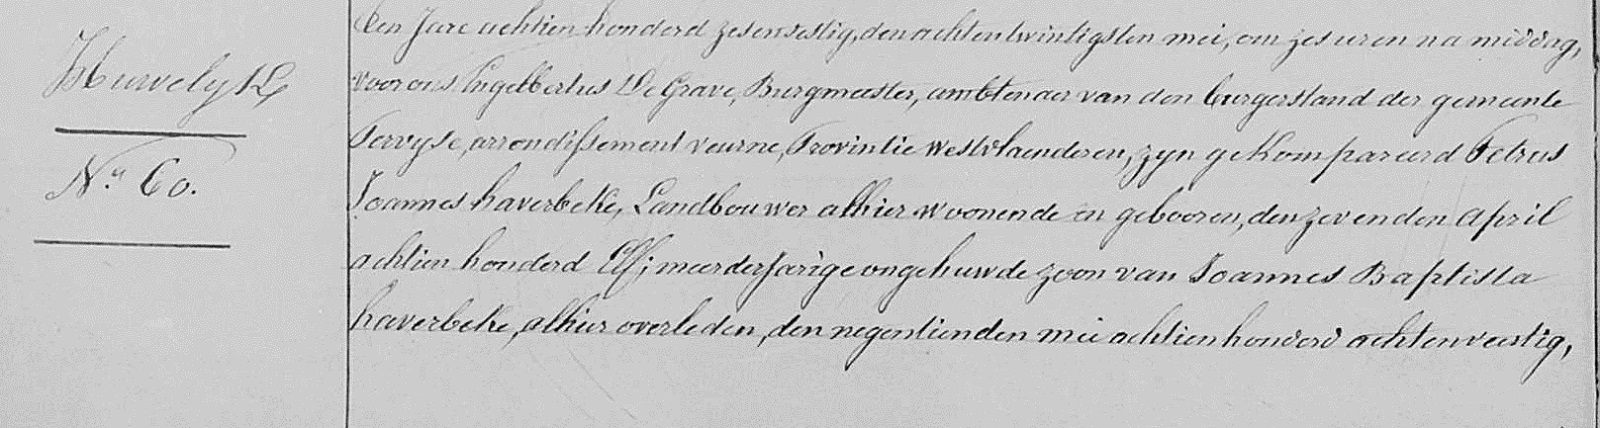 Huwelyk
N.º 60.
Den Jare achtien honderd zesenzestig, den achtentwintigsten mei, om zes uren na middag,
voor ons Engelbertus De Grave, Burgmeester, ambtenaer van den burgerstand der gemeente
Pervyse, arrondissement veurne, Provintie westvlaenderen, zyn gekompareerd Petrus
Joannes haverbeke, Landbouwer alhier woonende en gebooren, den zevenden april
achtien honderd Elf; meerderjarige ongehuwde zoon van Joannes Baptista
haverbeke, alhier overleden, den negentienden mei achtien honderd achtenveertig,